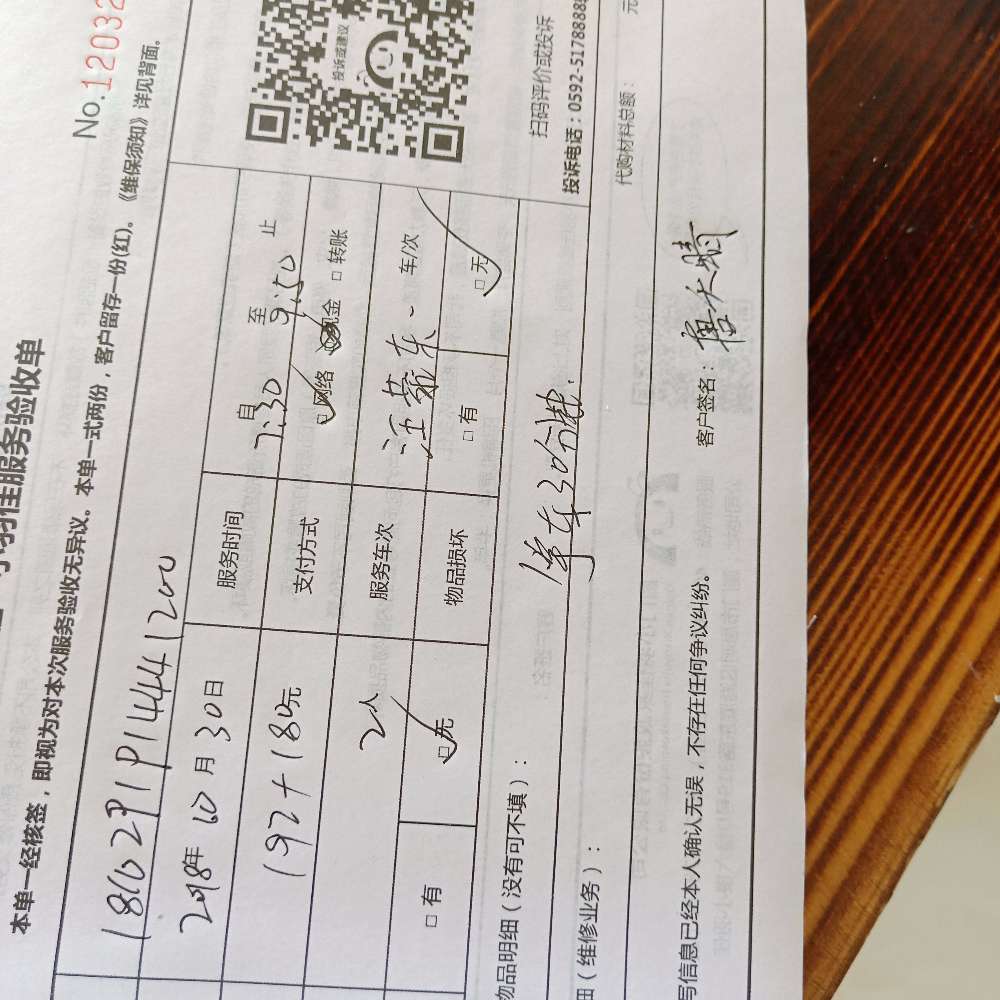 No.12032
羽佳服务验收单
本单一经核签，即视为对本次服务验收无异议。本单一式两份，客户留存一份(红)。《维保须知》详见背面。
2018年10月30日
服务时间
自7:30至9:50止
192+180元
支付方式
□网络 □现金 □转账
2人
服务车次
车/次
□有 □无
物品损坏
□有 □无
投诉或建议
扫码评价或投诉
投诉电话：0592-5178888
物品明细（没有可不填）：
等车30分钟.
细（维修业务）：
代购材料总额： 元
写信息已经本人确认无误，不存在任何争议纠纷。
客户签名：